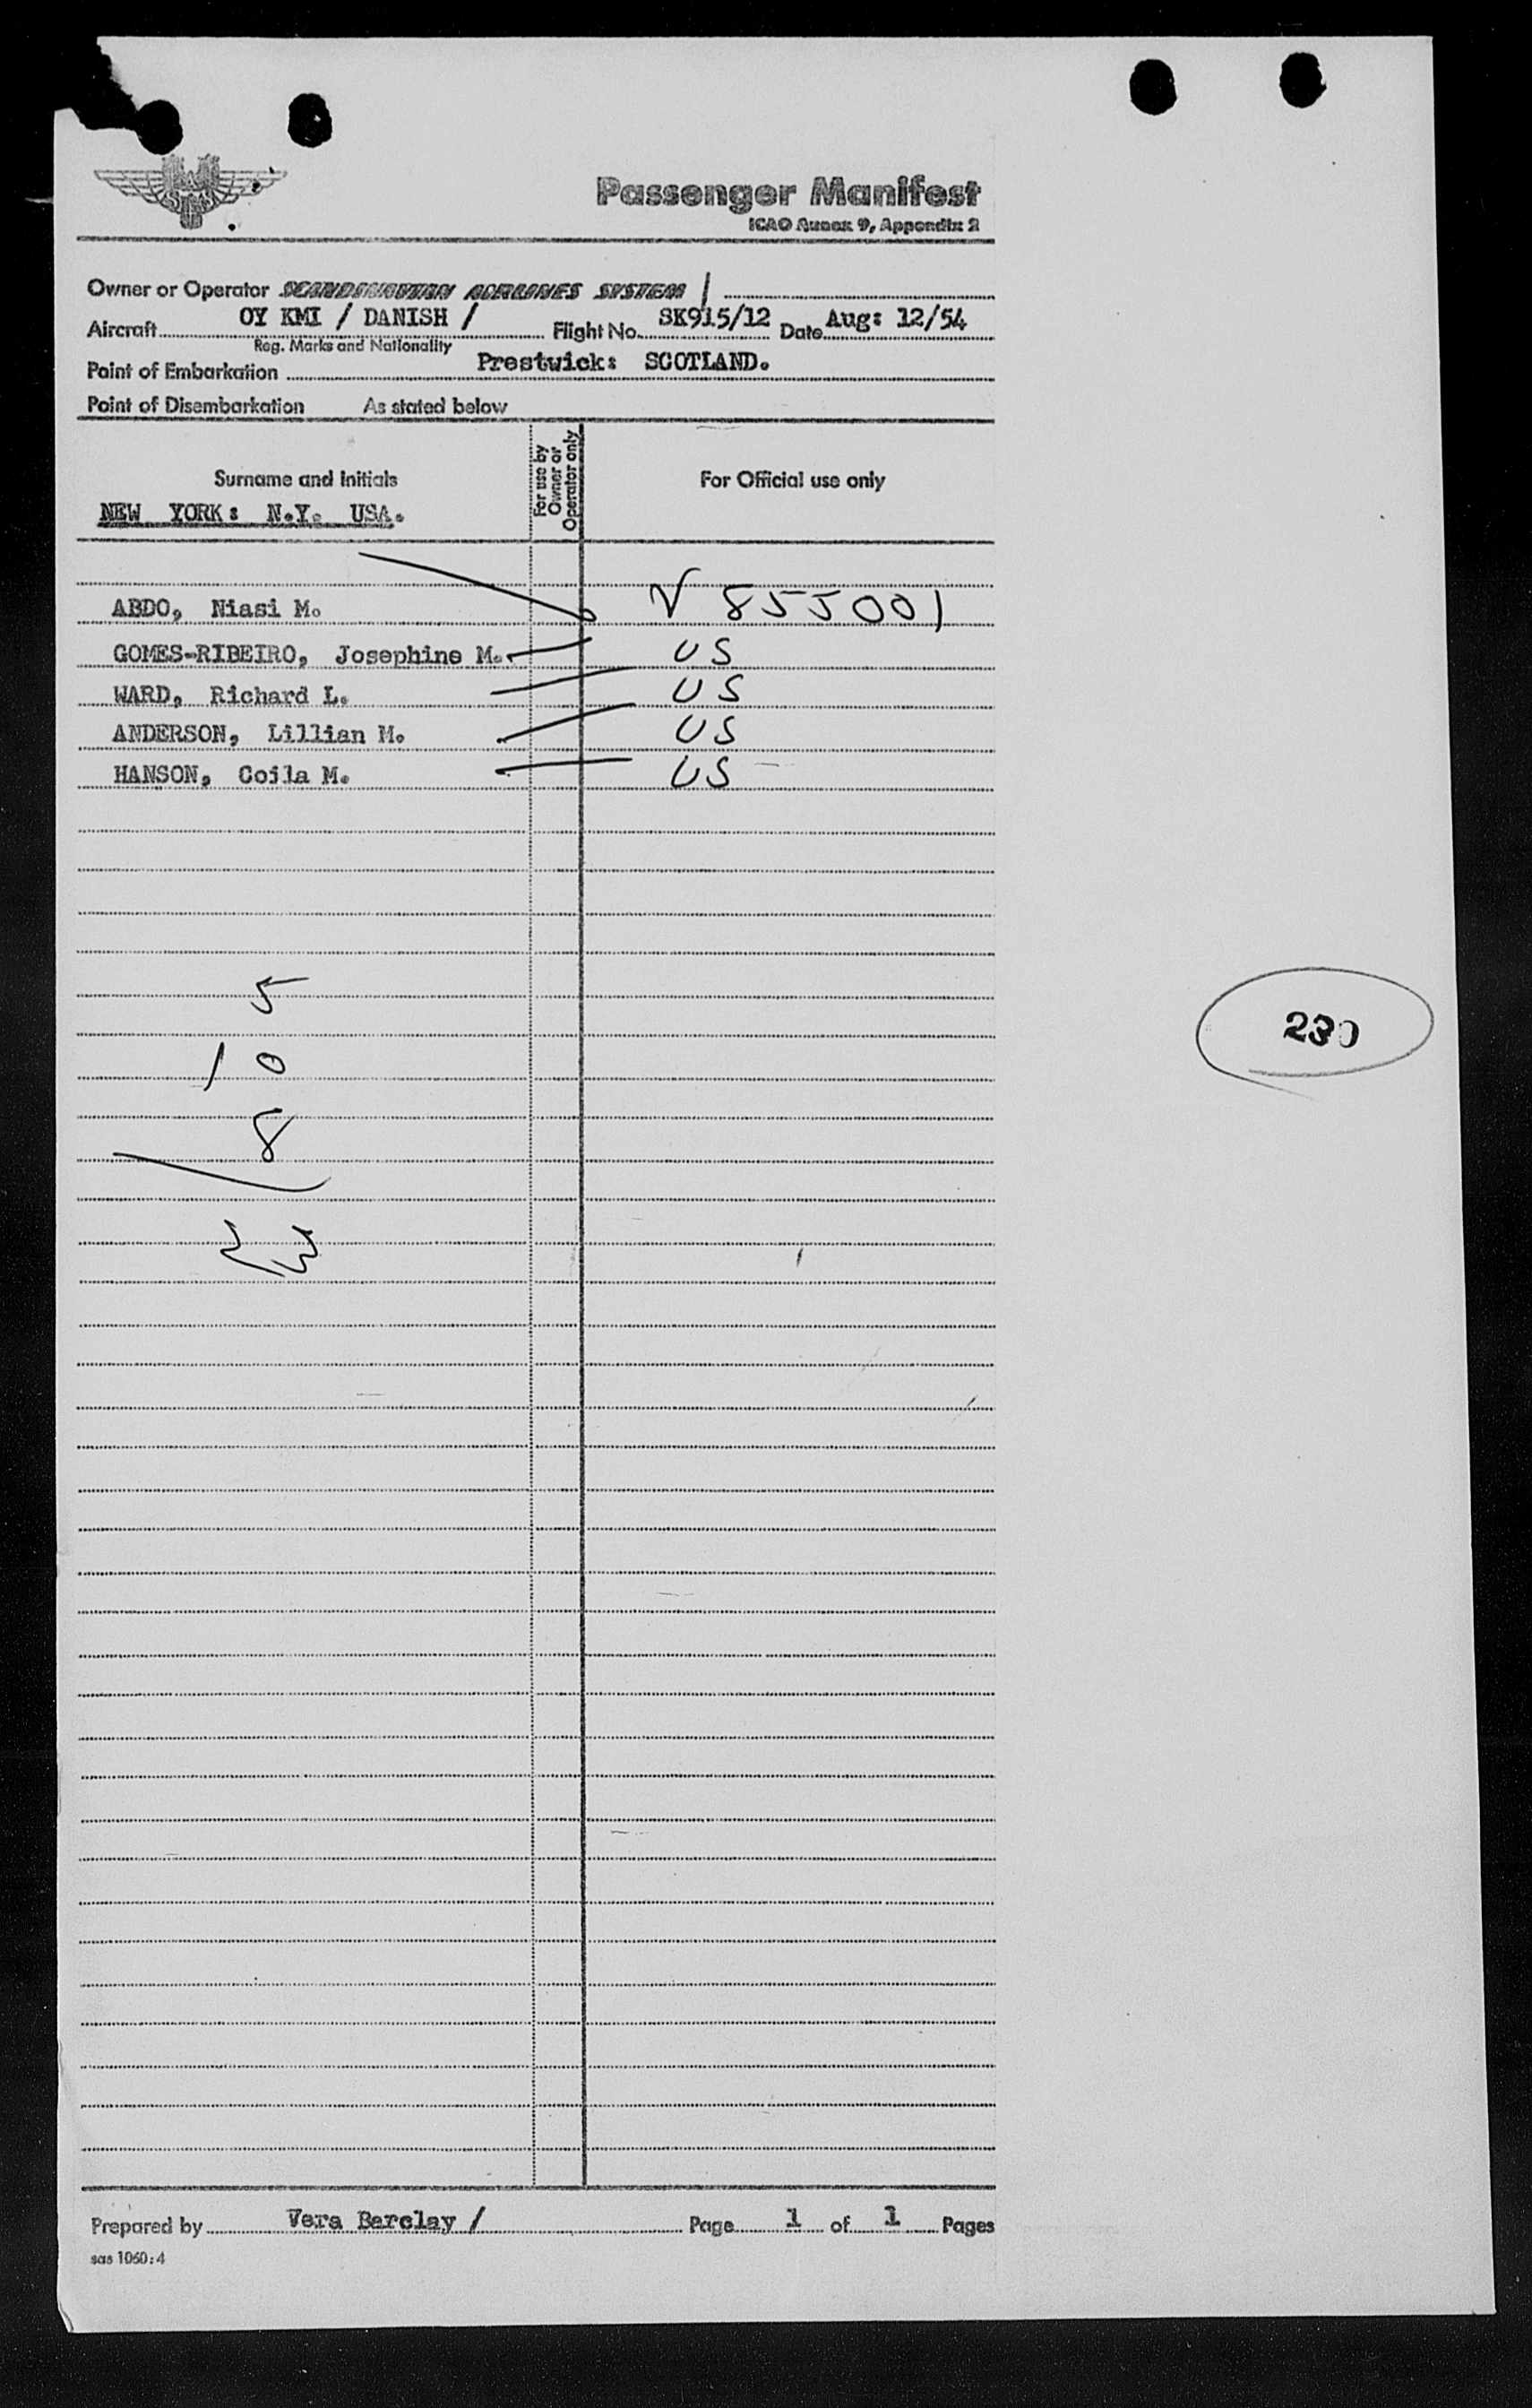 SAS
Passenger Manifest
ICAO Annex 9, Appendix 2
Owner or Operator SCANDINAVIAN AIRLINES SYSTEM /
Aircraft OY KMI / DANISH / Flight No. SK915/12 Date Aug: 12/54
Reg. Marks and Nationality
Point of Embarkation Prestwick: SCOTLAND.
Point of Disembarkation As stated below
Surname and Initials
For use by Owner or Operator only
For Official use only
NEW YORK: N.Y. USA.
ABDO, Niasi M. V 855001
GOMES-RIBEIRO, Josephine M. US
WARD, Richard L. US
ANDERSON, Lillian M. US
HANSON, Coila M. US
5
10
8
23
230
Prepared by Vera Barclay / Page 1 of 1 Pages
sas 1060:4